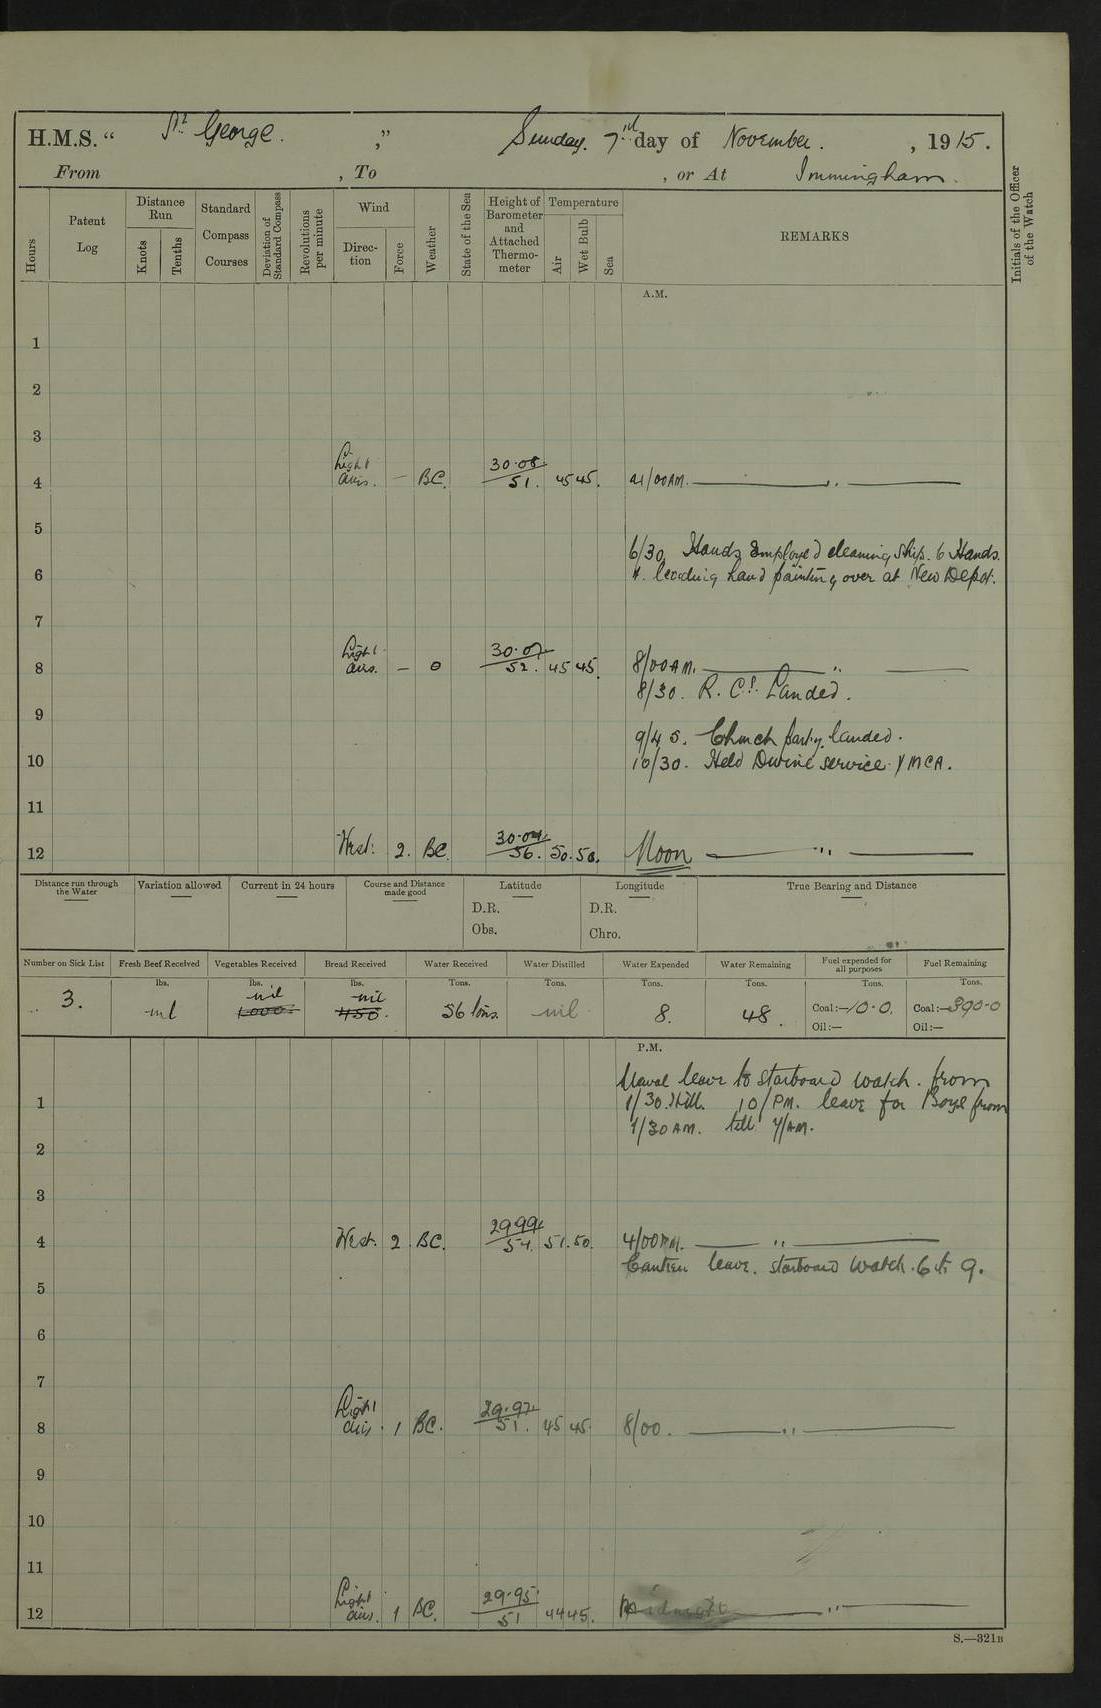 H.M.S. “ St George. ,”
Sunday. 7 day of November. , 1915.
From , To , or At Immingham.
Hours
Patent Log
Distance Run
Knots
Tenths
Standard Compass Courses
Deviation of Standard Compass
Revolutions per minute
Wind
Direction
Force
Weather
State of the Sea
Height of Barometer and Attached Thermometer
Temperature
Air
Wet Bulb
Sea
REMARKS
Initials of the Officer of the Watch
A.M.
1
2
3
4 Light airs. — BC. 30·08 51. 45 45. 4/00 AM. ——— " ———
5
6/30. Hands Employed cleaning Ship. 6 Hands.
6 leading hand painting over at New Depot.
7
8 Light airs. — 0 30·07 52. 45 45. 8/00 AM. ——— " ———
8/30. R. Cs. Landed.
9
9/45. Church party landed.
10 10/30. Held Divine service Y M C A.
11
12 West. 2. BC. 56. 50. 50. Noon ——— " ———
Distance run through the Water
Variation allowed
Current in 24 hours
Course and Distance made good
Latitude
D.R.
Obs.
Longitude
D.R.
Chro.
True Bearing and Distance
Number on Sick List
Fresh Beef Received
Vegetables Received
Bread Received
Water Received
Water Distilled
Water Expended
Water Remaining
Fuel expended for all purposes
Fuel Remaining
lbs. lbs. lbs. Tons. Tons. Tons. Tons. Tons. Tons.
3. nil nil 1000 nil 450. 56 tons. nil 8. 48. Coal:—10·0. Coal:—390·0
Oil:— Oil:—
P.M.
Naval leave to starboard watch. from
1 1/30 till 10/PM. leave for Boys from
1/30 AM. till 7/AM.
2
3
4 West. 2. BC. 29·99 54. 51. 50. 4/00 PM. ——— " ———
Canteen leave. starboard watch. 6 to 9.
5
6
7
8 Light airs. 1 BC. 29·97 51. 45 45. 8/00. ——— " ———
9
10
11
12 Light airs. 1 BC. 29·95 51 44 45. Midnight ——— " ———
S.—321B